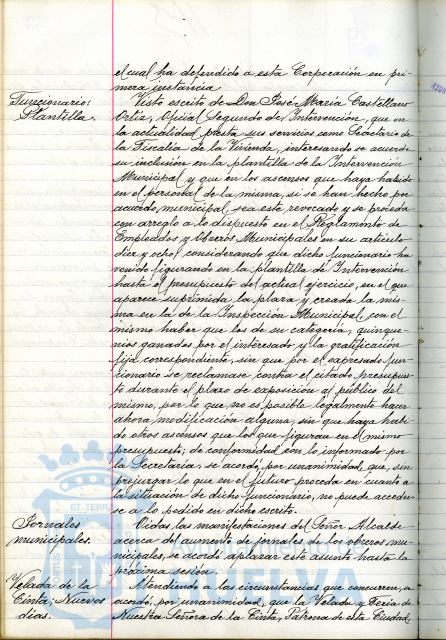 el cual ha defendido a esta Corporación en pri-
mera instancia.
Funcionario:
Plantilla.
Visto escrito de Don José María Castellano
Ortiz, Oficial Segundo de Intervención, que en
la actualidad presta sus servicios como Secretario de
la Fiscalía de la Vivienda, interesando se acuerde
su inclusión en la plantilla de la Intervención
Municipal y que en los ascensos que haya habido
en el personal de la misma, si se han hecho por
acuerdo municipal, sea este revocado y se proceda
con arreglo a lo dispuesto en el Reglamento de
Empleados y Obreros Municipales en su artículo
diez y ocho; considerando que dicho funcionario ha
venido figurando en la plantilla de Intervención
hasta el presupuesto del actual ejercicio, en el que
aparece suprimida la plaza y creada la mis-
ma en la de la Inspección Municipal, con el
mismo haber que los de su categoría, quinque-
nios ganados por el interesado y la gratificación
fija correspondiente, sin que por el expresado fun-
cionario se reclamase contra el citado presupues-
to durante el plazo de exposición al público del
mismo, por lo que no es posible legalmente hacer
ahora modificación alguna, sin que haya habi-
do otros ascensos que los que figuran en el mismo
presupuesto; de conformidad con lo informado por
la Secretaría, se acordó, por unanimidad que, sin
prejuzgar lo que en el futuro proceda en cuanto a
la situación de dicho funcionario, no puede acceder-
se a lo pedido en dicho escrito.
Jornales
municipales.
Oidas las manifestaciones del Señor Alcalde
acerca del aumento de jornales de los obreros mu-
nicipales, se acordó aplazar este asunto hasta la
próxima sesión.
Velada de la
Cinta; Nuevos
días.
Atendiendo a las circunstancias que concurren, se
acordó, por unanimidad, que la Velada y Feria de
Nuestra Señora de la Cinta, Patrona de esta Ciudad,
ET TERRA
HUELVA